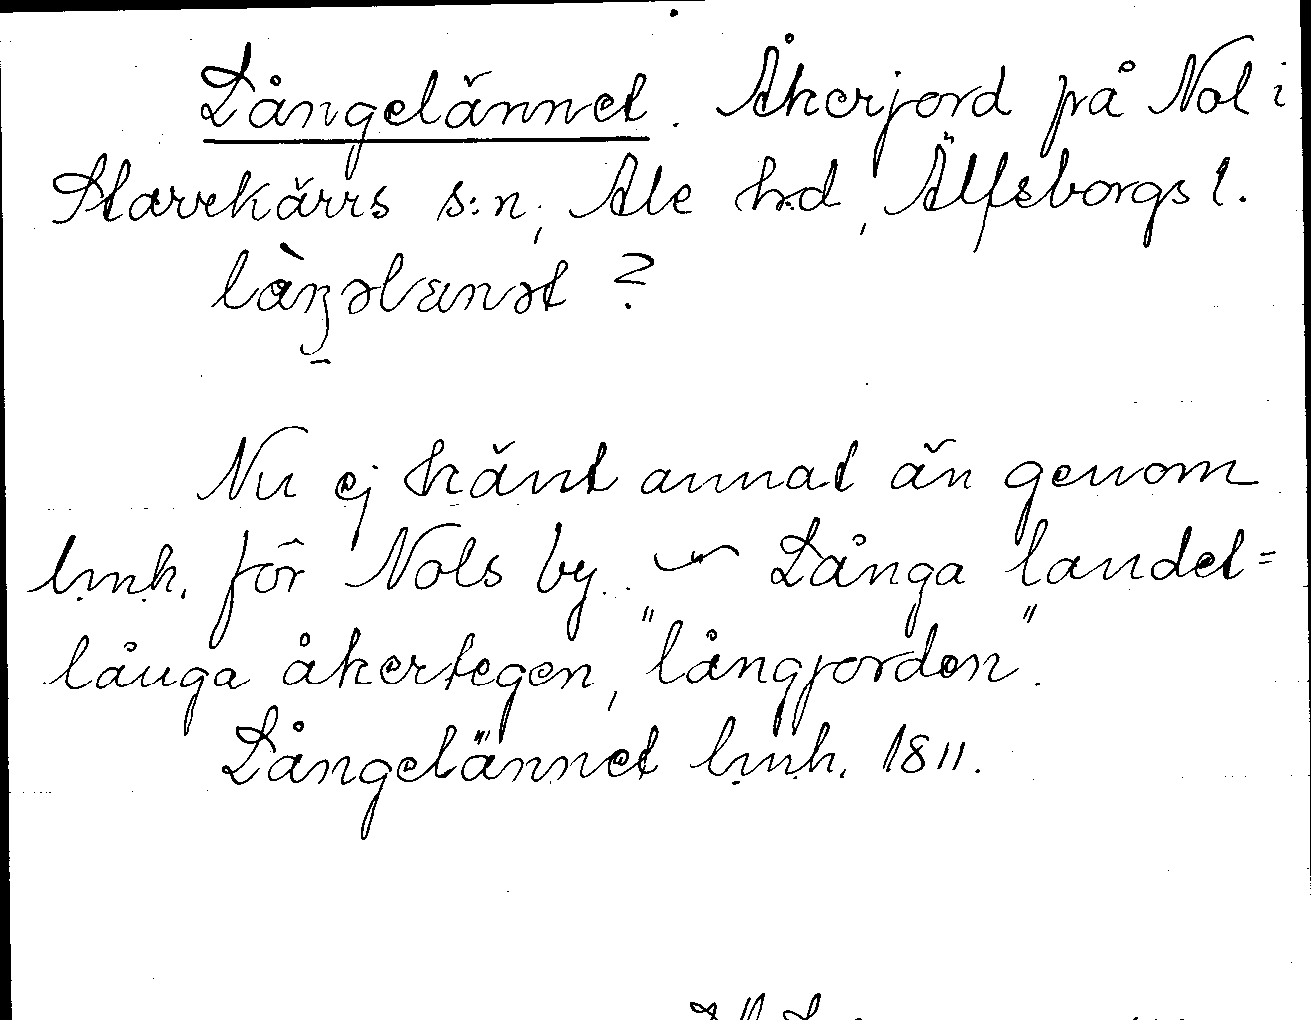 Långelännet. Åkerjord på Nol i
Starrkärrs s:n, Ale hd, Älfsborgs l.
Nu ej känt annat än genom
lmk. för Nols by. ~ Långa landet =
långa åkertegen, "långjorden".
Långelännet lmk. 1811.